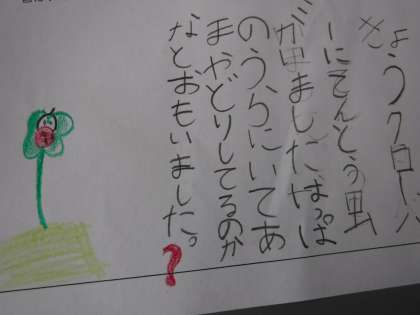 きょうクローバ
ーにてんとう虫
が出ましたはっぱ
のうらにいてあ
まやどりしてるのか
なとおもいました。?